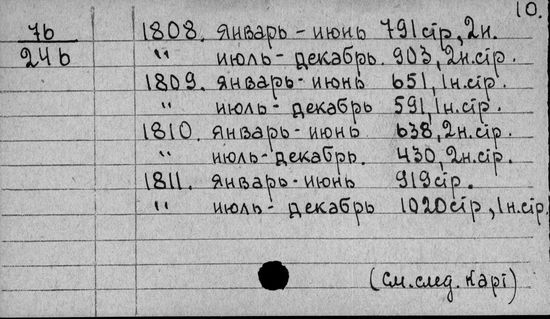 10.
7б
24б
1808. январь - июнь 791 сір, 2н.
" июль - декабрь. 903, 2н.сір.
1809. январь - июнь 651, 1н.сір.
" июль - декабрь 591, 1н.сір.
1810. январь - июнь 638, 2н.сір.
" июль - декабрь. 430, 2н.сір.
1811. январь - июнь 919сір.
" июль - декабрь 1020сір, 1н.сір.
(См. след. карі)